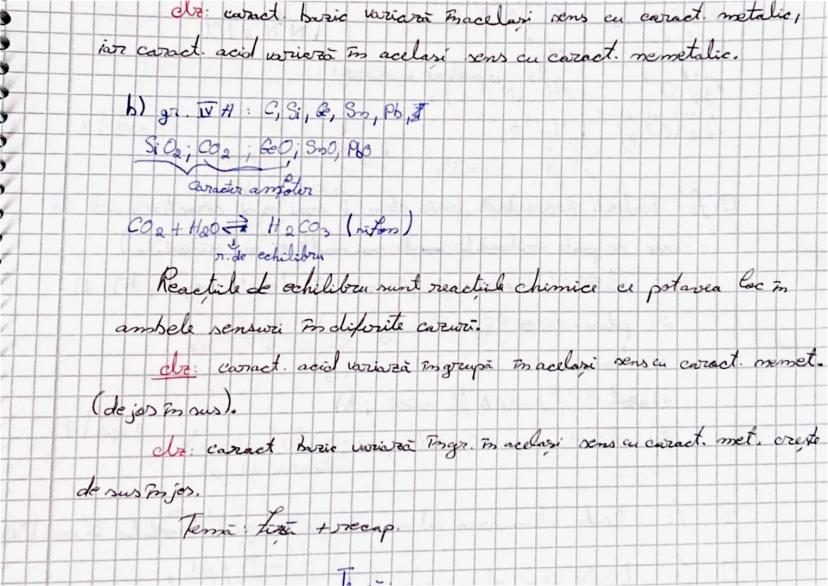 clz: caract. bazic variază în același sens cu caract. metalic,
iar caract. acid variază în același sens cu caract. nemetalic.
b) gr. IV A : C, Si, Ge, Sn, Pb,
SiO2; CO2 ; GeO; SnO, PbO
caracter amfoter
CO2 + H2O ⇌ H2CO3 (sifon)
r. de echilibru
Reacțiile de echilibru sunt reacțiile chimice ce pot avea loc în
ambele sensuri în diferite cazuri.
clz: caract. acid variază în grupă în același sens cu caract. nemet.
(de jos în sus).
clz: caract bazic variază în gr. în același sens cu caract. met. crește
de sus în jos.
Temă: fișă + recap.